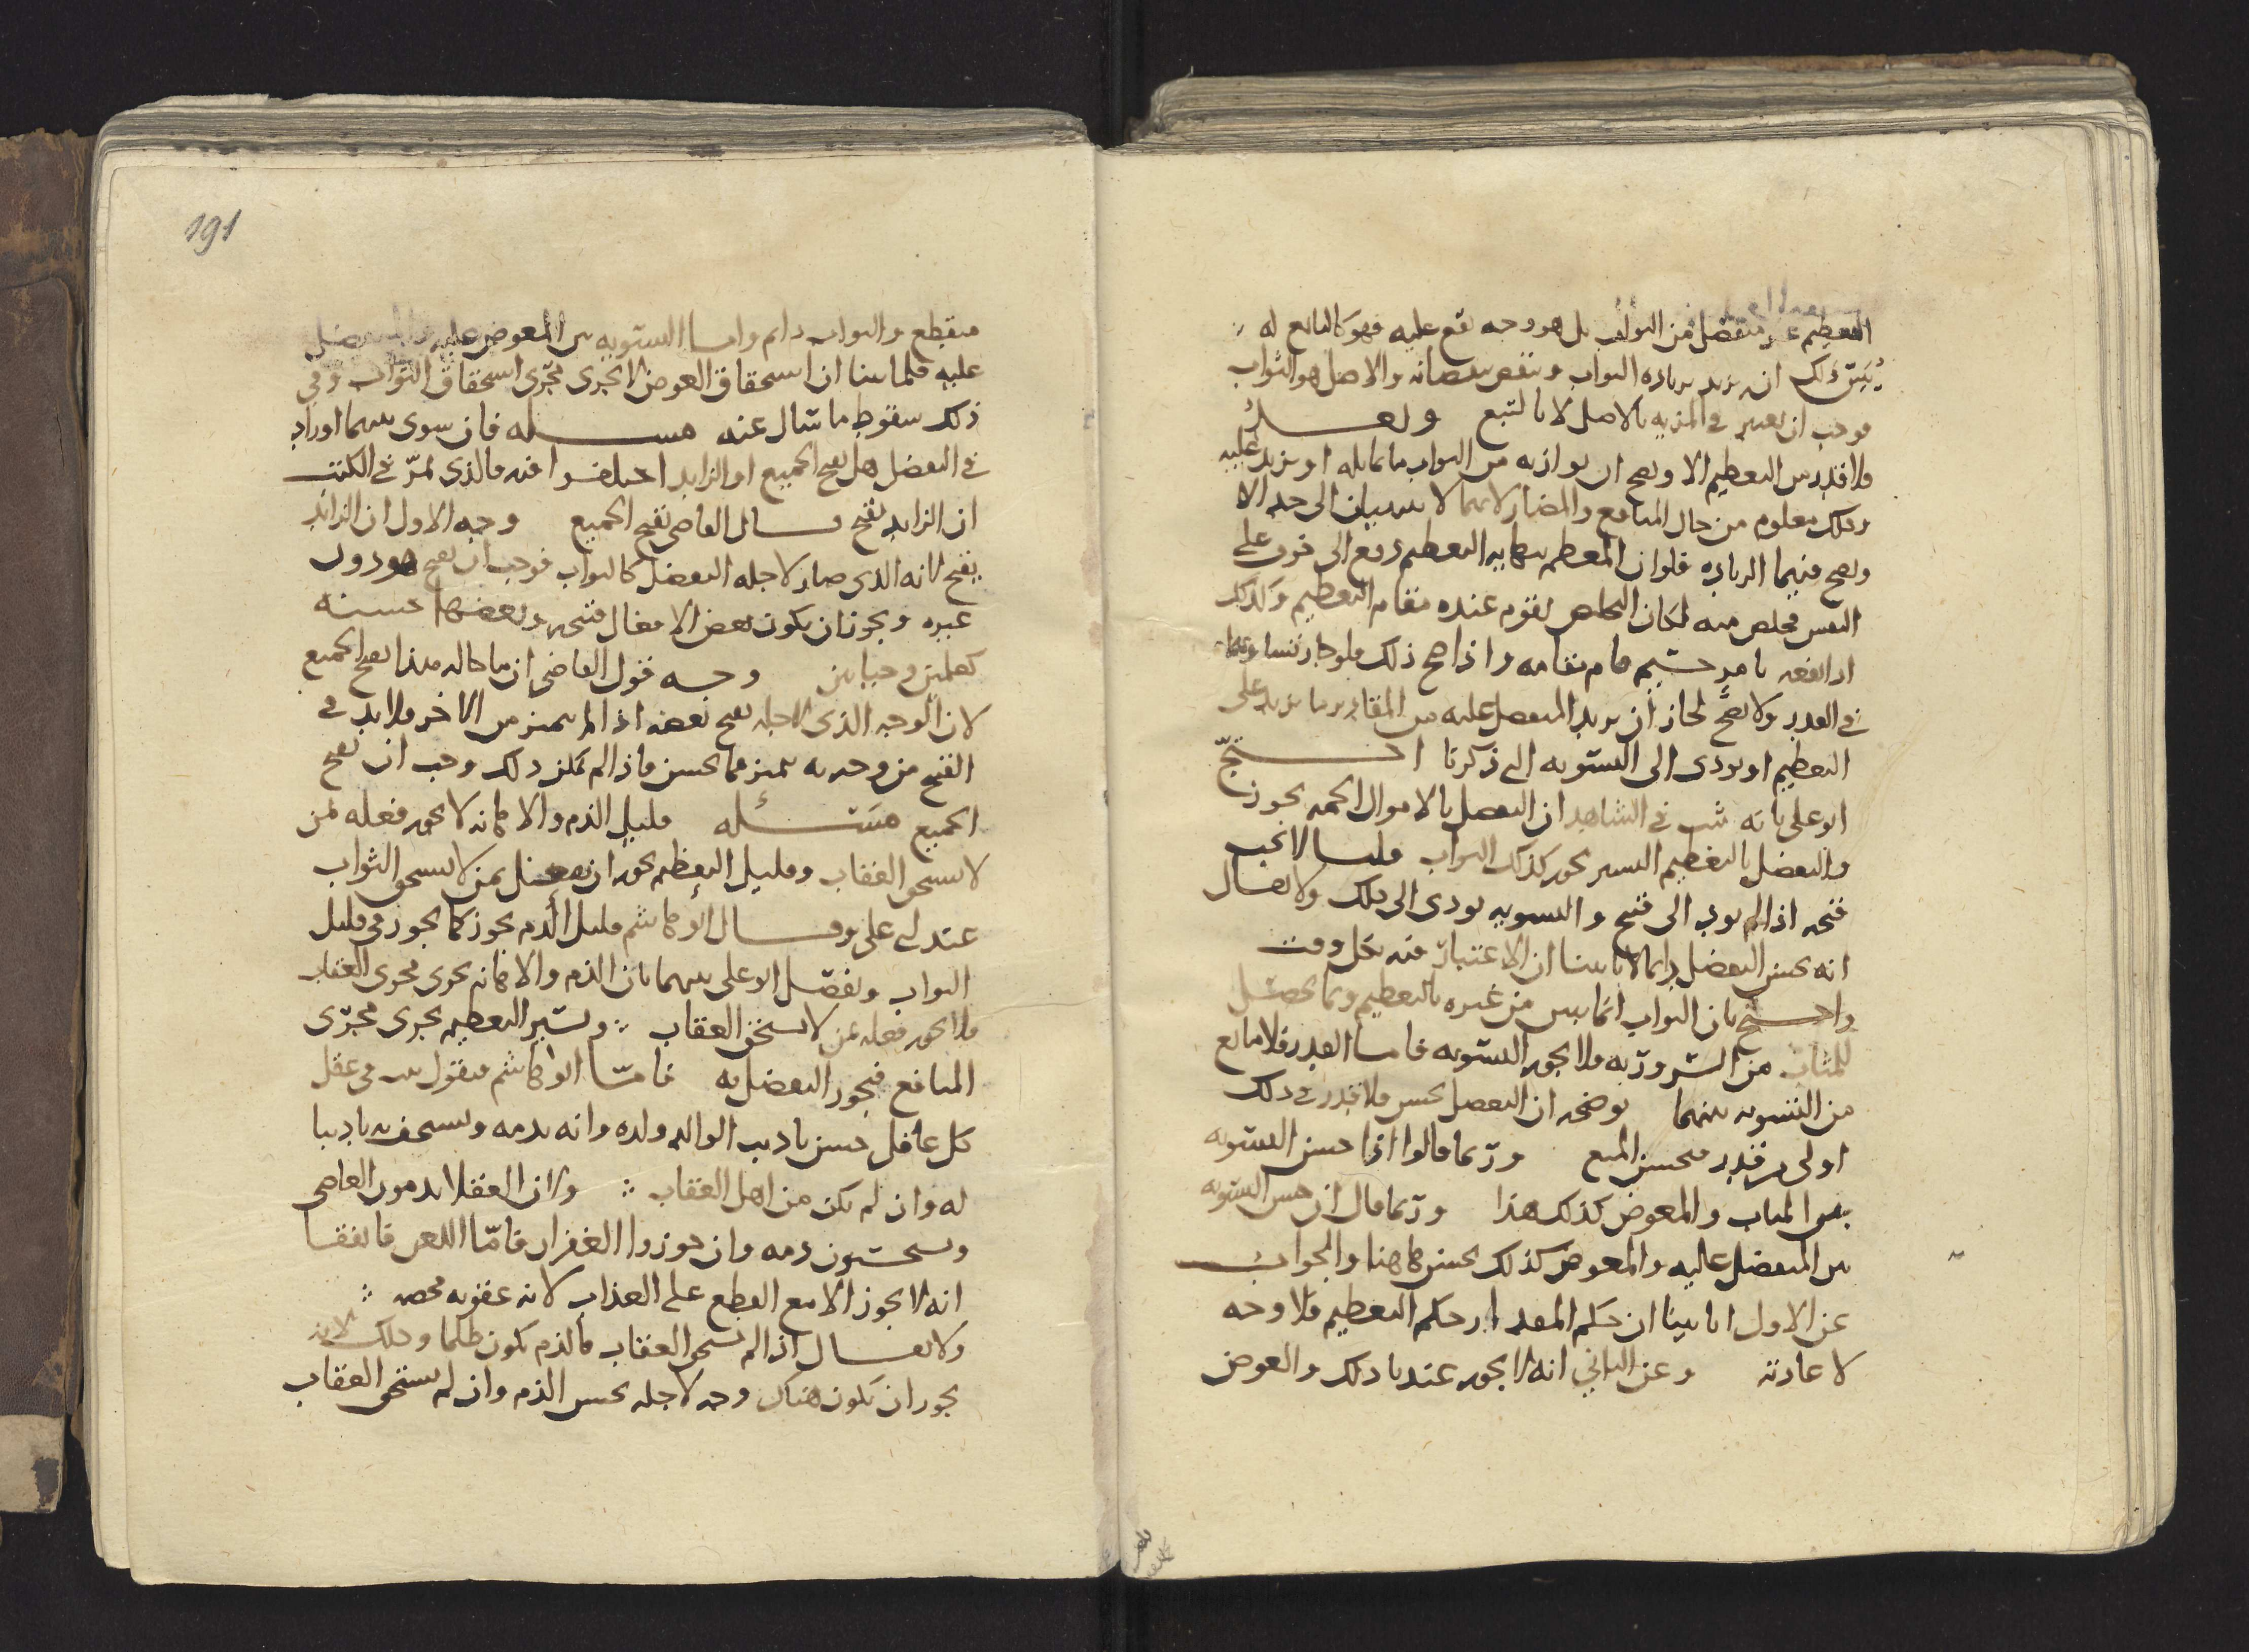 التعظيم غير منفصل من الثواب بل هو وجه يقع عليه فهو كالتابع له
يبين ذلك انه يزيد بزيادة الثواب وينقص بنقصانه والاصل هو الثواب
فوجب ان يعتبر في المزيه بالاصل لا بالتبع وبعد
فلا قدر من التعظيم الا ويصح ان يوازيه من الثواب ما يماثله او يزيد عليه
وذلك معلوم من حال المنافع والمضار لانهما لا ينتهيان الى حد الا
ويصح فيهما الزياده فلو ان المعظم بنهاية التعظيم دفع الى خوف على
النفس فخلص منه لكان التخلص يقوم عنده مقام التعظيم وكذلك
اذا نفعه بامر جسيم قام مقامه واذا صح ذلك فلو جاز تساويهما
في القدر ولا يصح لجاز ان يزيد المتفضل عليه من المقادير ما يزيد على
التعظيم او يودى الى التسويه التي ذكرنا احتج
ابو على بانه ثبت في الشاهد ان التفضل بالاموال الجمه يجوز
والتفضل بالتعظيم اليسير يجوز كذلك الثواب قلنا لا يجب
قبحه اذا لم يود الى قبح والتسويه تودى الى ذلك ولا يقال
انه يحسن التفضل دايما لانا بينا ان الاعتبار فيه بكل وقت
واحتج بان الثواب انما يبين من غيره بالتعظيم وبما يحصل
للمثاب من السرور به فلا يجوز التسويه فاما القدر فلا مانع
من التسويه بينهما يوضحه ان التفضل يحسن فلا قدر في ذلك
اولى من قدر فيحسن الجميع وربما قالوا اذا حسن التسويه
بين المثاب والمعوض كذلك هذا وربما قال ان حسن التسويه
بين المتفضل عليه والمعوض كذلك يحسن هاهنا والجواب
عن الاول انا بينا ان حكم المقدار حكم التعظيم فلا وجه
لاعادته وعن الثاني انه لا يجوز عندنا ذلك والعوض
191
منقطع والثواب دايم واما التسويه بين المعوض عليه والمتفضل
عليه فلما بينا ان استحقاق العوض لا يجرى مجرى استحقاق الثواب وفي
ذلك سقوط ما سال عنه مسله فان سوى بينهما او زاد
في التفضل هل يقبح الجميع او الزايد اختلفوا فيه فالذى يمر في الكتب
ان الزايد يقبح وقال القاضى يقبح الجميع وجه الاول ان الزايد
يقبح لانه الذى صار لاجله التفضل كالثواب فوجب ان يقبح هو دون
غيره ويجوز ان يكون بعض الافعال قبيحه وبعضها حسنه
كعلمين وحياتين وجه قول القاضى ان ما حاله هذا يقبح الجميع
لان الوجه الذى لاجله يقبح بعضه اذا لم يتميز من الاخر فلا بد في
القبح من وجه به يتميز مما يحسن فاذا لم يكن ذلك وجب ان يقبح
الجميع مسئله قليل الذم والاهانه لا يجوز فعله لمن
لا يستحق العقاب وقليل التعظيم يجوز ان يتفضل بمن لا يستحق الثواب
عند ابي على وقال ابو هاشم قليل الذم يجوز كما يجوز في قليل
الثواب ويفصل ابو على بينهما بان الذم والاهانه يجرى مجرى العقاب
فلا يجوز فعله لمن لا يستحق العقاب ويسير التعظيم يجرى مجرى
المنافع فيجوز التفضل به فاما ابو هاشم فيقول ثبت في عقل
كل عاقل حسن تاديب الوالد ولده وانه يذمه ويستخف به تاديبا
له وان لم يكن من اهل العقاب ولان العقلا يذمون العاصى
ويستحسنون ذمه وان جوزوا الغفران فاما اللعن فاتفقا
انه لا يجوز الا مع القطع على العذاب لانه عقوبه محضه
ولا يقال اذا لم يستحق العقاب فالذم يكون ظلما وذلك لانه
يجوز ان يكون هناك وجه لاجله يحسن الذم وان لم يستحق العقاب